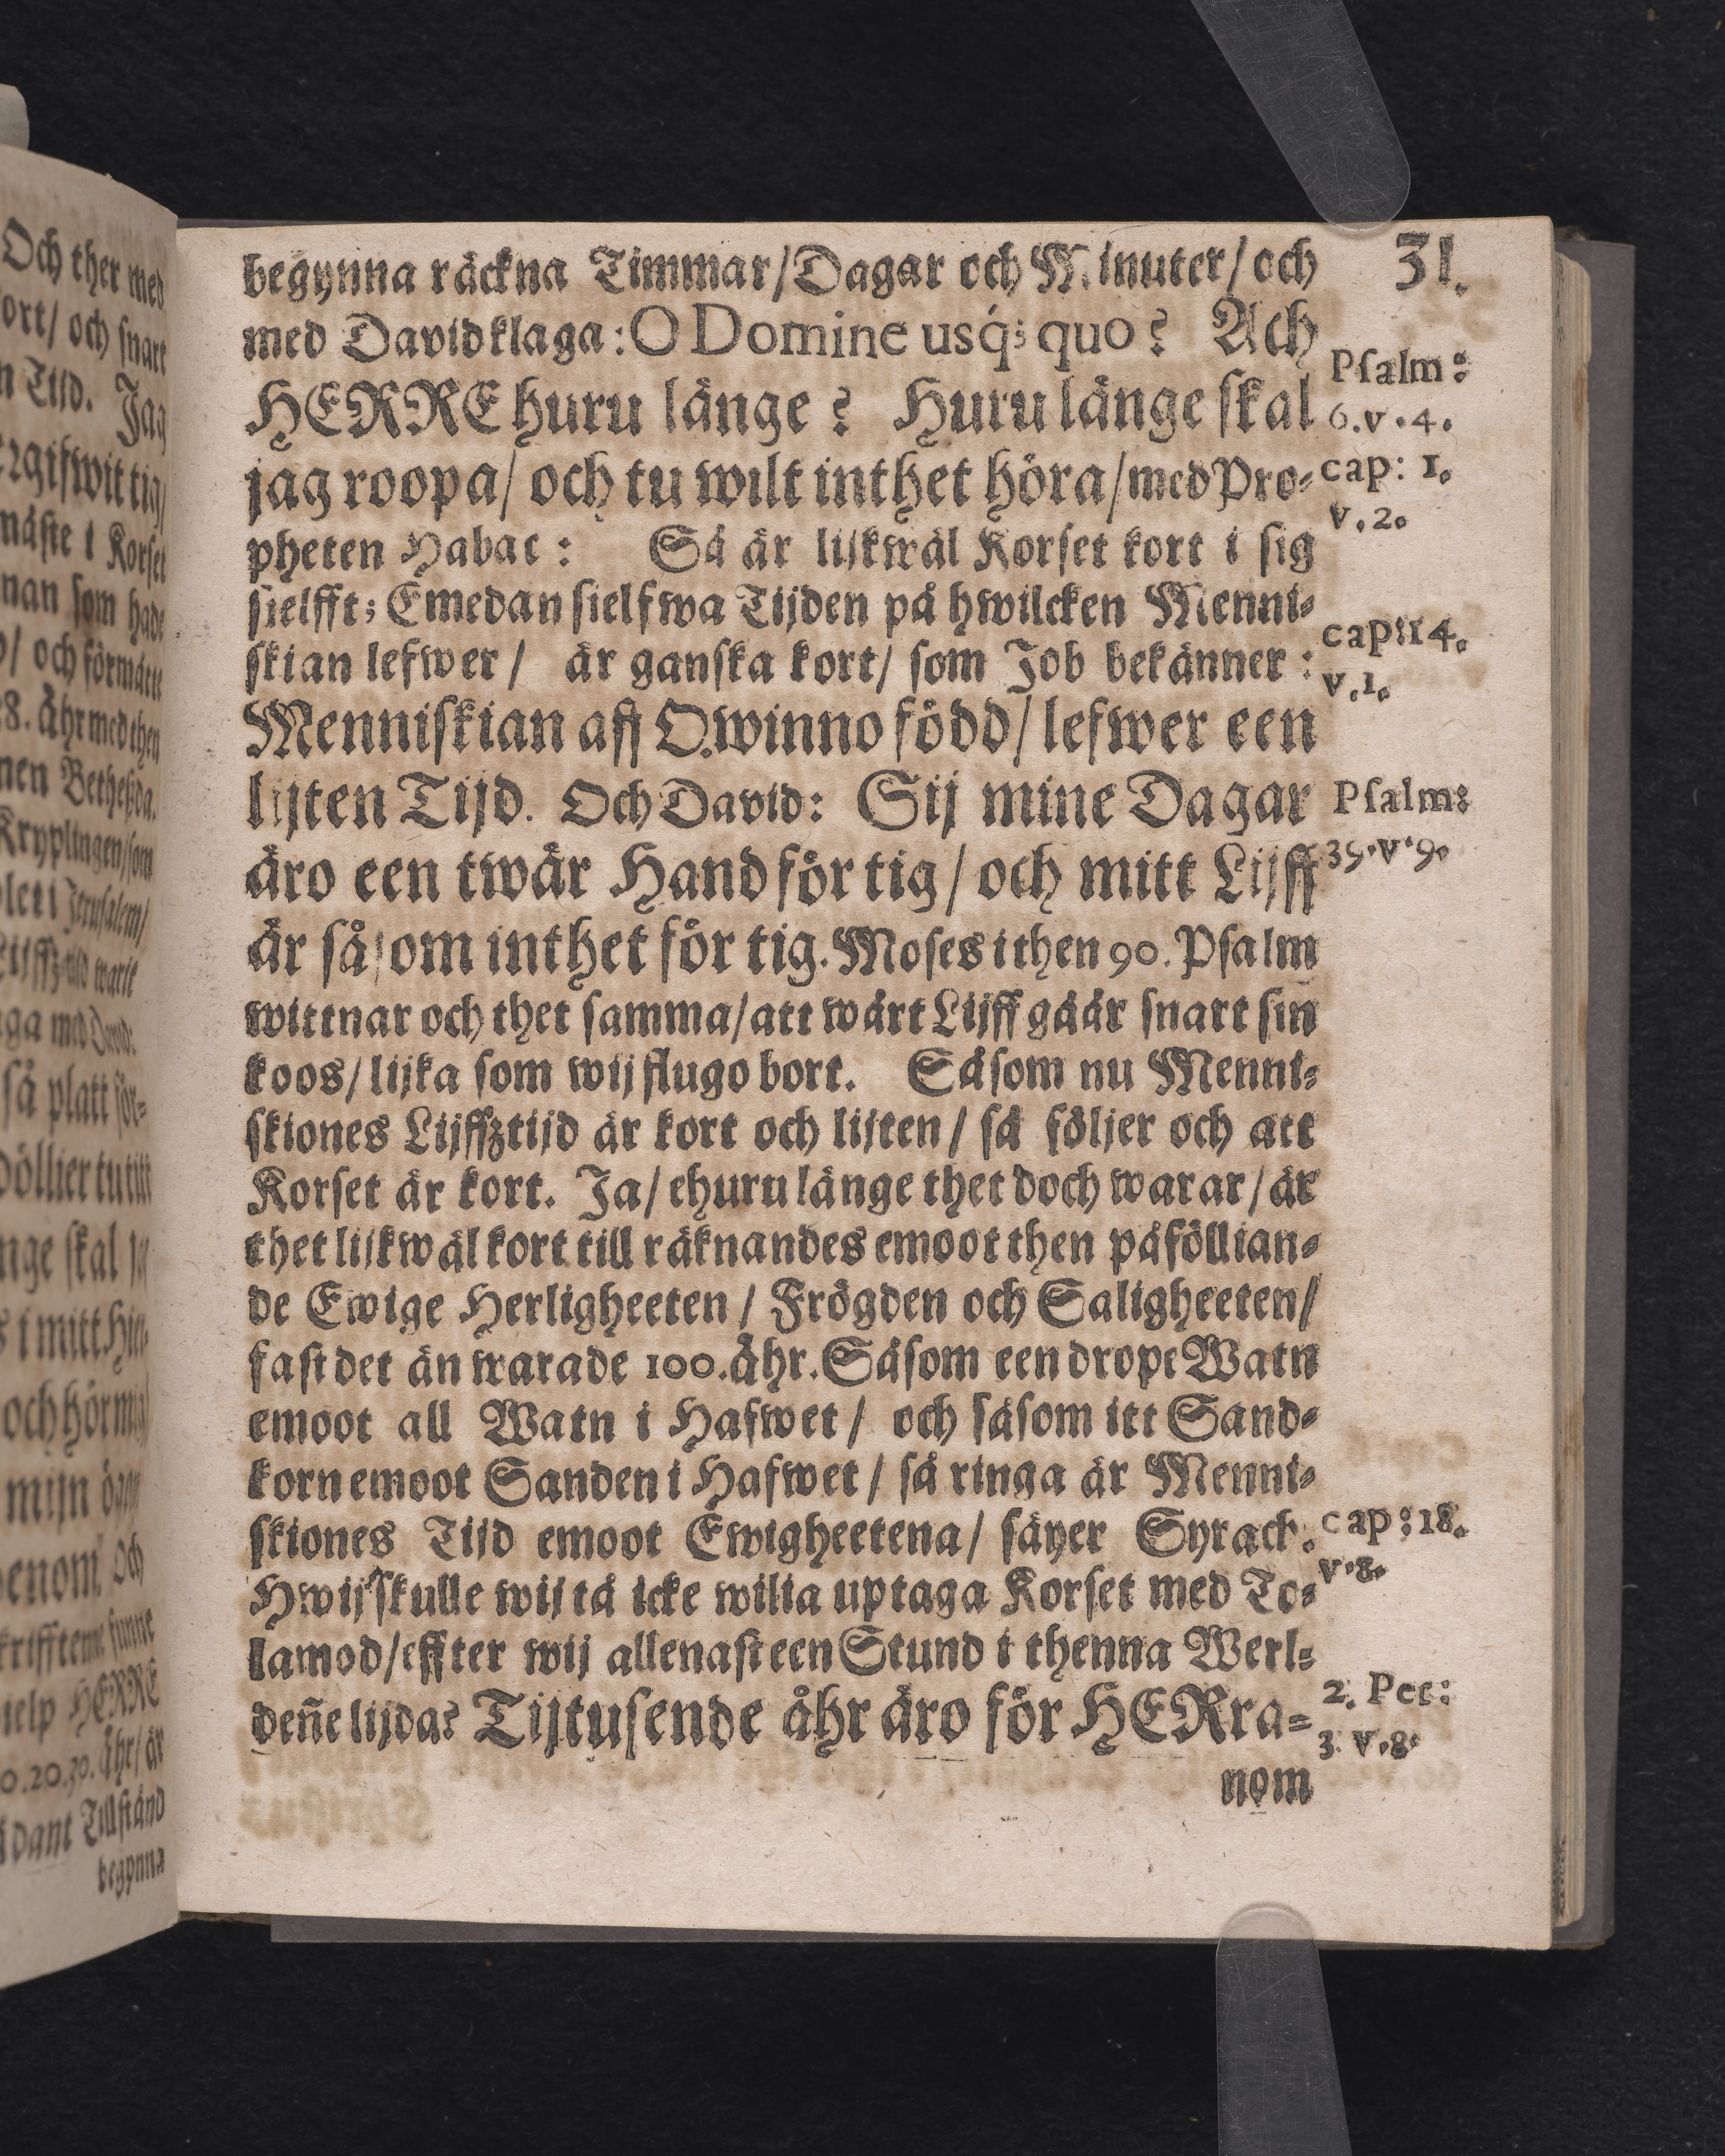 31.
begynna räckna Timmar/Dagar och Minuter/och
med David klaga: O Domine usq́; quo? Ach
HERRE huru länge? Huru länge skal
jag roopa/ och tu wilt inthet höra/med Pro-
pheten Habac: Så är lijkwäl Korset kort i sig
sielfft; Emedan sielfwa Tijden på hwilcken Menni-
skian lefwer/ är ganska kort/ som Job bekänner:
Menniskian aff Qwinno född/ lefwer een
lijten Tijd. Och David: Sij mine Dagar
äro een twär Hand för tig/ och mitt Lijff
är såsom inthet för tig. Moses i then 90. Psalm
wittnar och thet samma/att wårt Lijff gåår snart sin
koos/ lijka som wij flugo bort. Såsom nu Menni-
skiones Lijffztijd är kort och lijten/ så följer och att
Korset är kort. Ja/ ehuru länge thet doch warar/ är
thet lijkwäl kort till räknandes emoot then påföllian-
de Ewige Herligheeten/ Frögden och Saligheeten/
fast det än warade 100. åhr. Såsom een drope Watn
emoot all Watn i Hafwet/ och såsom itt Sand-
korn emoot Sanden i Hafwet/ så ringa är Menni-
skiones Tijd emoot Ewigheetena/ säyer Syrach.
Hwij skulle wij tå icke wilia uptaga Korset med To-
lamod/effter wij allenast een Stund i thenna Werl-
deñe lijda? Tijtusende åhr äro för HERra-
nom
Psalm:
6.v.4.
cap: 1.
v.2.
cap:14.
v.1.
Psalm:
39.v.9.
cap:18.
v.8.
2. Pet:
3. v.8.
Och ther med
och snart
Tijd. Jag
i Korset
som hade
och förmåtte
åhr med then
Bethesda.
Kryplingen/som
Jerusalem/
så platt för-
skal
i mitt
HERRE
åhr/ är
Tillstånd
begynna